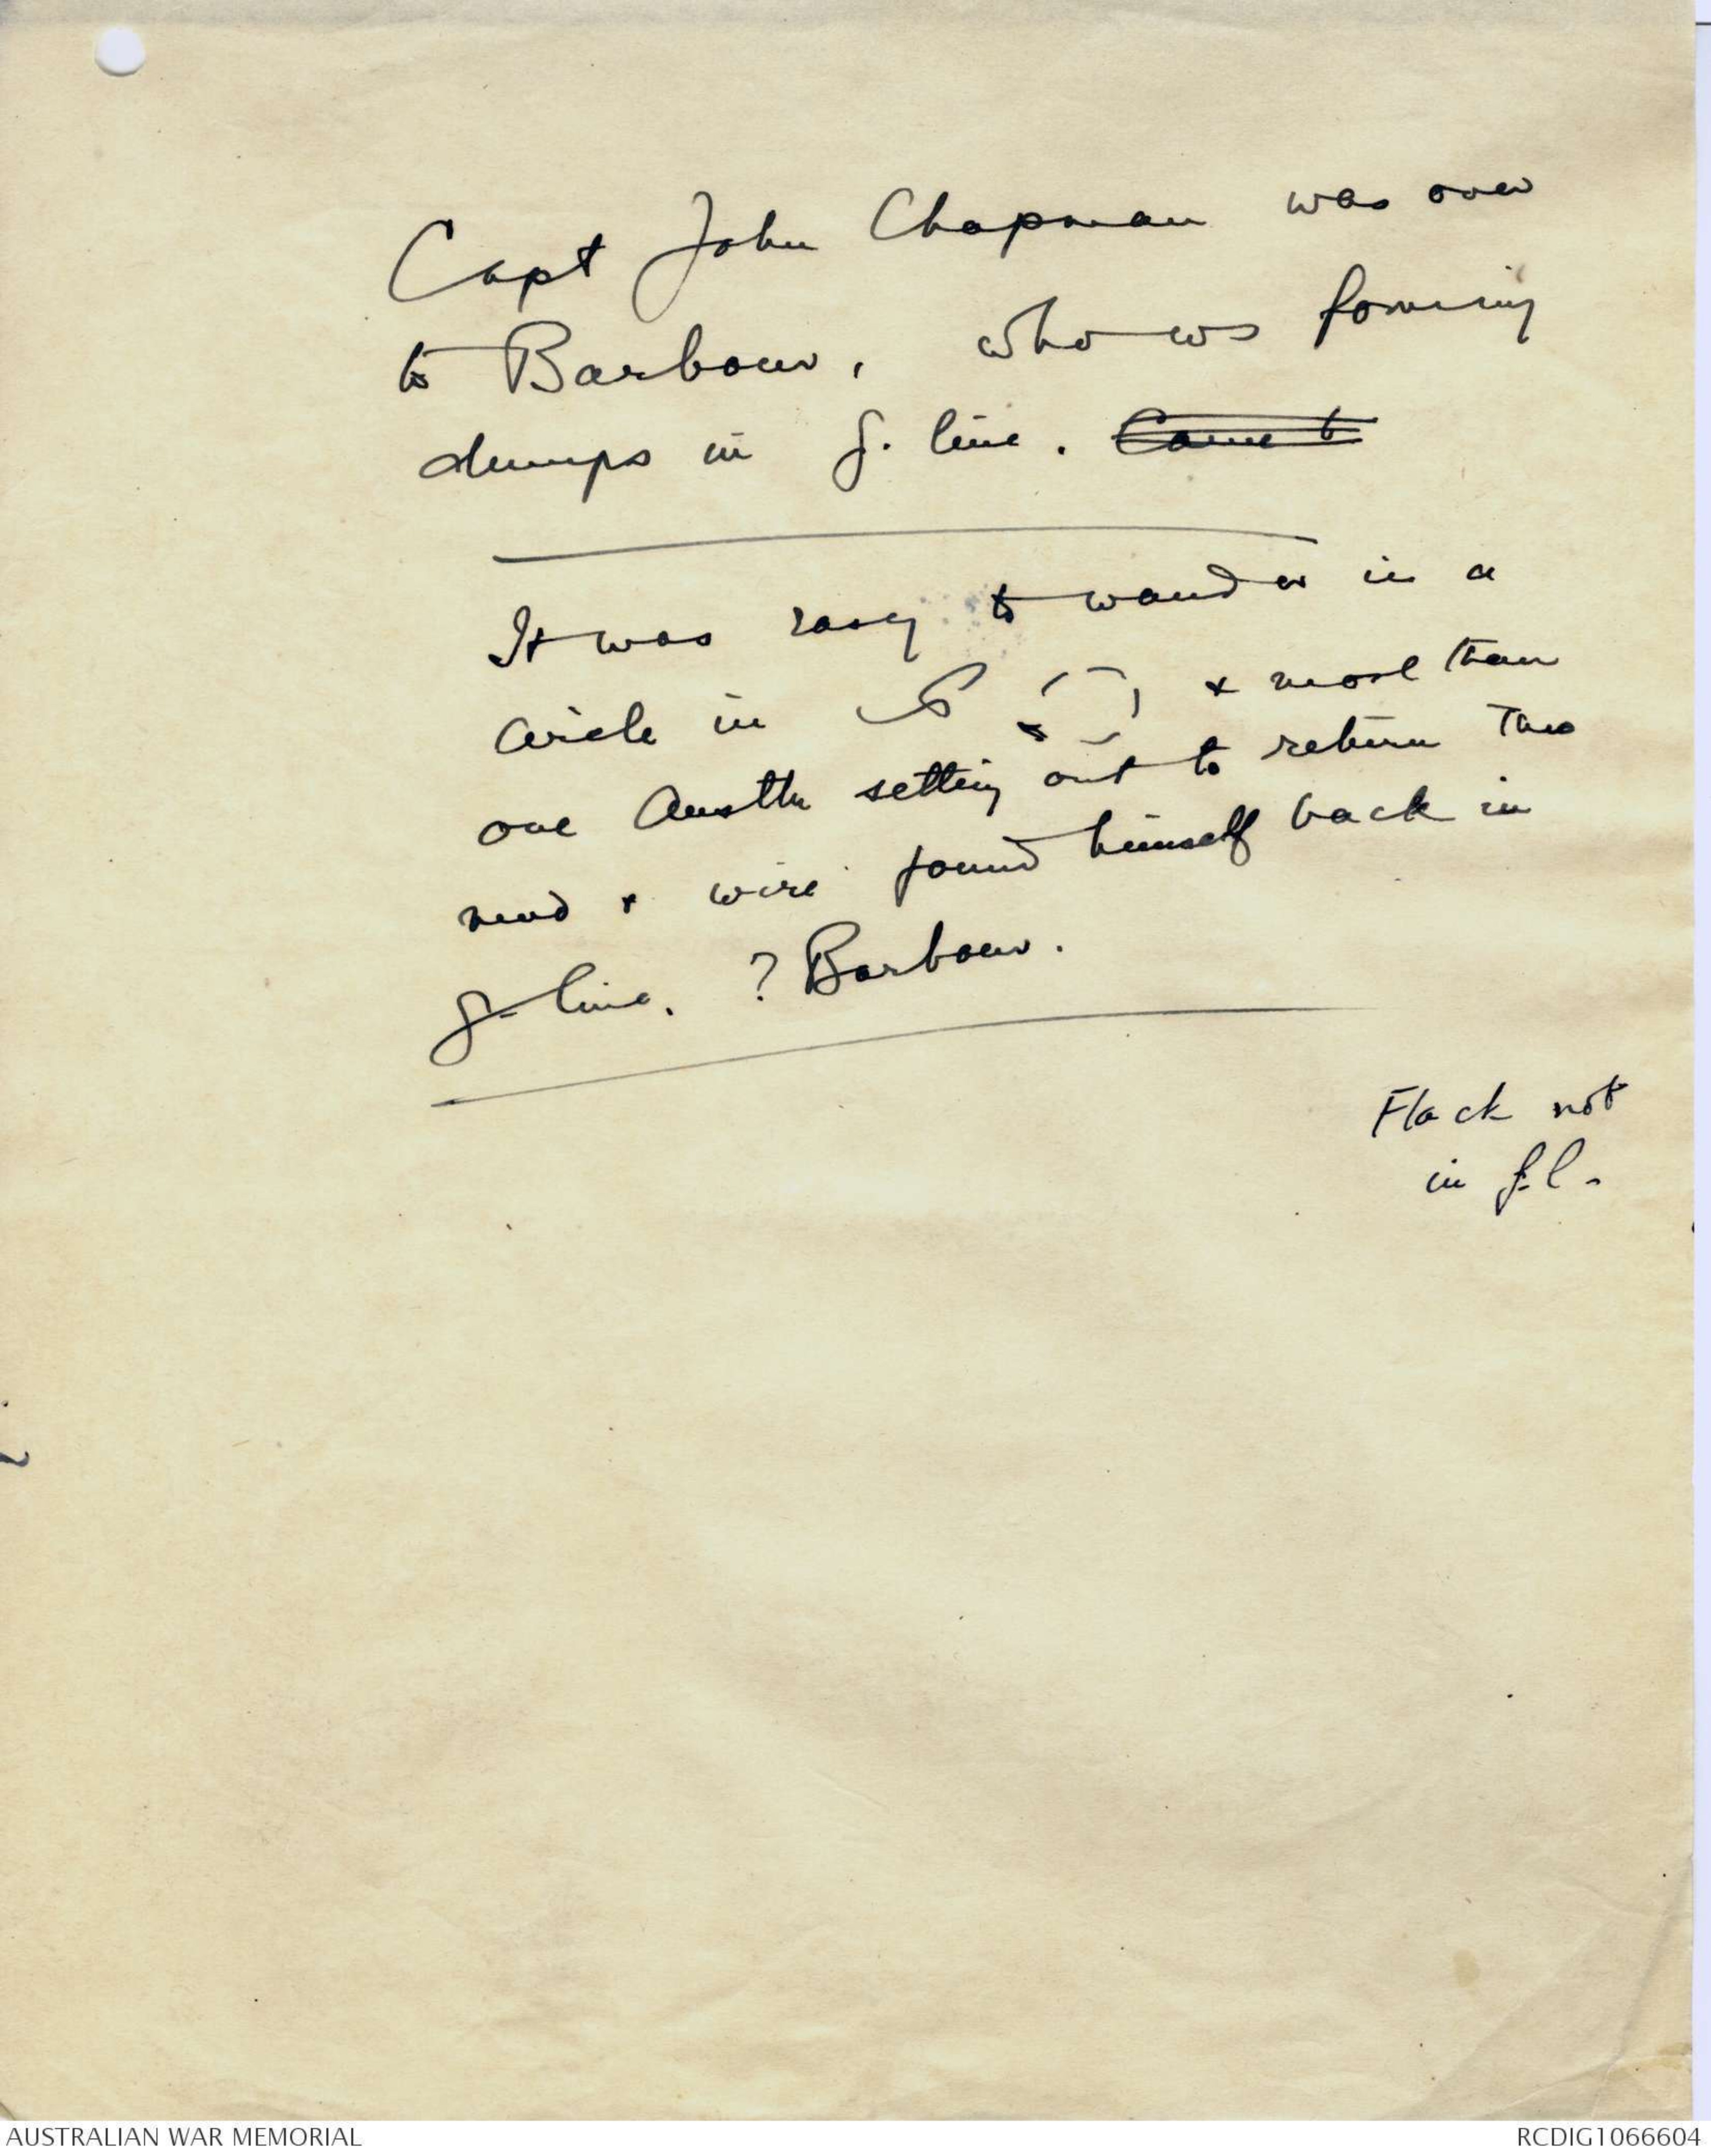 Capt John Chapman was over
to Barbour, who ws forming
dumps in g. line. Came to
It was easy to wander in a
circle in & more than
one Austln setting out to return thro
mud & wire found himself back in
g- line. ? Barbour.
Flack not
in f.l.
AUSTRALIAN WAR MEMORIAL
RCDIG1066604